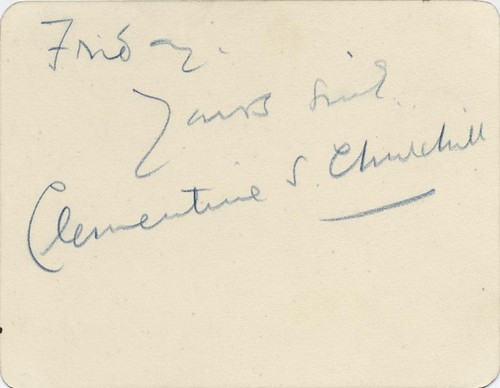 Friday.
Yours sincl.
Clementine S. Churchill